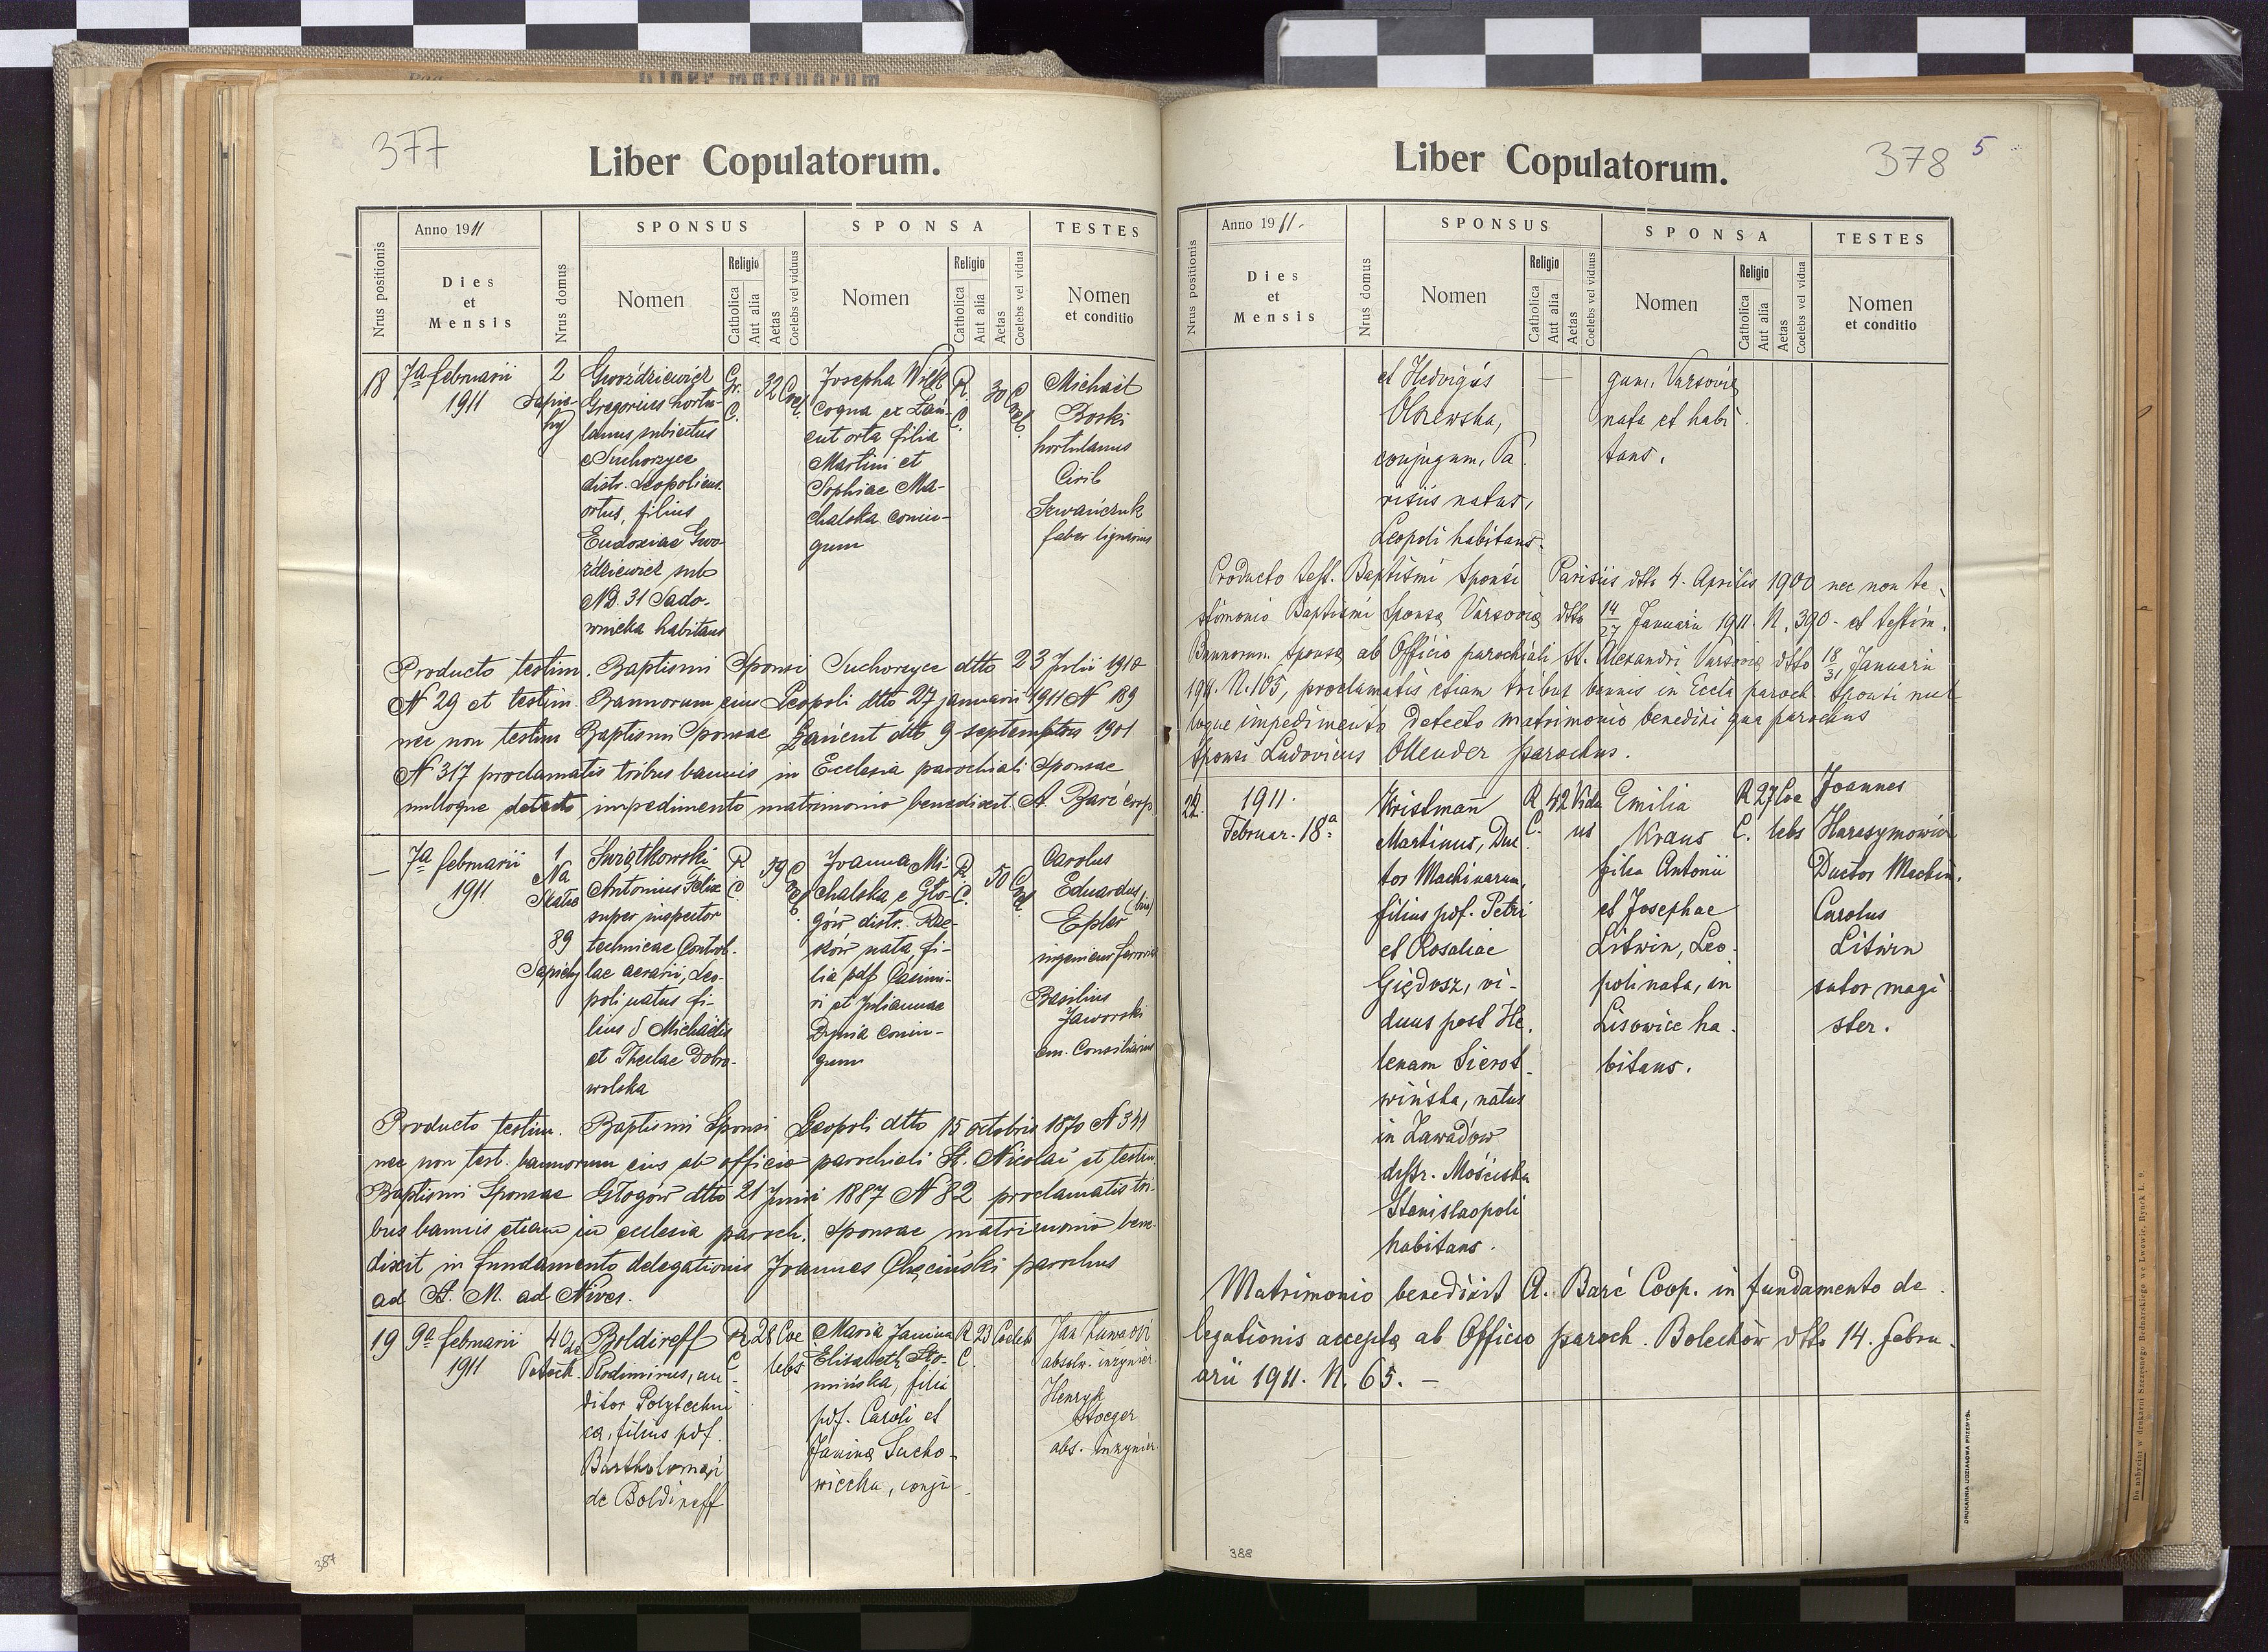 377
Liber Copulatorum.
Nrus positionis
Anno 1911
Dies
et
Mensis
Nrus domus
SPONSUS
Nomen
Religio
Catholica
Aut alia
Aetas
Coelebs vel viduus
SPONSA
Nomen
Religio
Catholica
Aut alia
Aetas
Coelebs vel vidua
TESTES
Nomen
et conditio
18
7a februarii
1911
2
Sapie-
hy
Gwoździewicz
Gregorius hortu-
lanus, subiectus
e Suchorzyce
distr. Leopoliens.
ortus, filius
Eudoxiae Gwo-
ździewicz sub
ND. 31 Sado-
wnicka habitans
Gr.
C.
32
Coel.
Josepha Wilk
coqua ex Łań-
cut orta filia
Martini et
Sophiae Ma-
chalska coniu-
gum
R.
C.
30
Coel.
Michaël
Boski
hortulanus
Ciril
Szwańczuk
faber lignarius
Producto testim. Baptismi Sponsi Suchorzyce dtto 23 Julii 1910
N 29 et testim. Bannorum eius Leopoli dtto 27 januarii 1911 N 189
nec non testim Baptismi Sponsae Łańcut dtto 9 septembris 1901
N 317 proclamatis tribus bannis in Ecclesia parochiali Sponsae
nulloque detecto impedimento matrimonio benedixit. A. Baré coop.
—
7a februarii
1911
1
Na
Skałce
89
Sapiehy
Świątkowski
Antonius Felix
super inspector
technicae Control-
lae aerarii, Leo-
poli natus fi-
lius Michaëlis
et Theclae Dobro-
wolska
R.
C.
39
Coel.
Joanna Mi-
chalska e Gło-
gów distr. Rze-
szów nata, fi-
lia pdf Casimi-
ri et Juliannae
Dynia coniu-
gum
R.
C.
50
Coel.
Carolus
Eduardus (bin)
Epler
ingenieur ferrov.
Basilius
Jaworski
em. Consiliarius
Producto testim. Baptismi Sponsi Leopoli dtto 15 octobris 1870 N 341
nec non test. bannorum eius ab officio parochiali St. Nicolai et testim.
Baptismi Sponsae Głogów dtto 21 Junii 1887 N 82 proclamatis tri-
bus bannis etiam in ecclesia paroch. sponsae matrimonio bene-
dixit in fundamento delegationis Joannes Chęciński parochus
ad St. M. ad Nives.
19
9a februarii
1911
Potock.
Boldireff
Wlodimirus, au-
ditor Polytechni
ca, filius pdf.
Bartholomaei
de Boldireff
R
C
28
Coe
lebs
Maria Janina
Elisabeth Sło-
mińska, filia
pdf. Caroli et
Janinę Sucho-
wiecka, conju-
R
C.
23
Coelebs
Jan
absolv. inżynier
Henryk
Stoeger
abs. inżynier
387
378
5
Liber Copulatorum.
Nrus positionis
Anno 1911.
Dies
et
Mensis
Nrus domus
SPONSUS
Nomen
Religio
Catholica
Aut alia
Aetas
Coelebs vel viduus
SPONSA
Nomen
Religio
Catholica
Aut alia
Aetas
Coelebs vel vidua
TESTES
Nomen
et conditio
et Hedvigis
Olszewska,
conjugum, Pa
risiis natus,
Leopoli habitans.
gum, Varsovię
nata et habi
tans.
Producto test. Baptismi Sponsi Parisiis dtto 4. Aprilis 1900 nec non te-
stimonio Baptismi Sponsę Varsovię dtto 14/27 Januarii 1911. N. 390. et testim.
Bannorum Sponsę ab Officio parochiali St. Alexandri Varsovię dtto 18/31 Januarii
1911. N. 105, proclamatis etiam tribus bannis in Eccla paroch. Sponsi nul
loque impedimento detecto matrimonio benedixi qua parochus
Sponsi Ludovicus Ollender parochus.
22.
1911.
Februar. 18a
Kristmann
Martinus, Duc
tor Machinarum,
filius pdf. Petri
et Rosaliae
Giędosz, vi-
duus post He-
lenam Sierot-
wińska, natus
in Zawadów
distr. Mościska
Stanislaopoli
habitans.
R
C.
42
Vidu
us
Emilia
Kraus
filia Antonii
et Josephae
Litwin, Leo-
poli nata, in
Lisowice ha-
bitans.
R
C.
27
Coe
lebs
Joannes
Harasymowicz
Ductor Machin.
Carolus
Litwin
sutor magi
ster.
Matrimonio benedixit A. Baré Coop. in fundamento de-
legationis acceptę ab Officio paroch. Bolechów dtto 14. febru-
arii 1911. N. 65. —
388
DRUKARNIA UDZIAŁOWA PRZEMYŚL.
Do nabycia: w drukarni Szczęsnego Bednarskiego we Lwowie, Rynek l. 9.